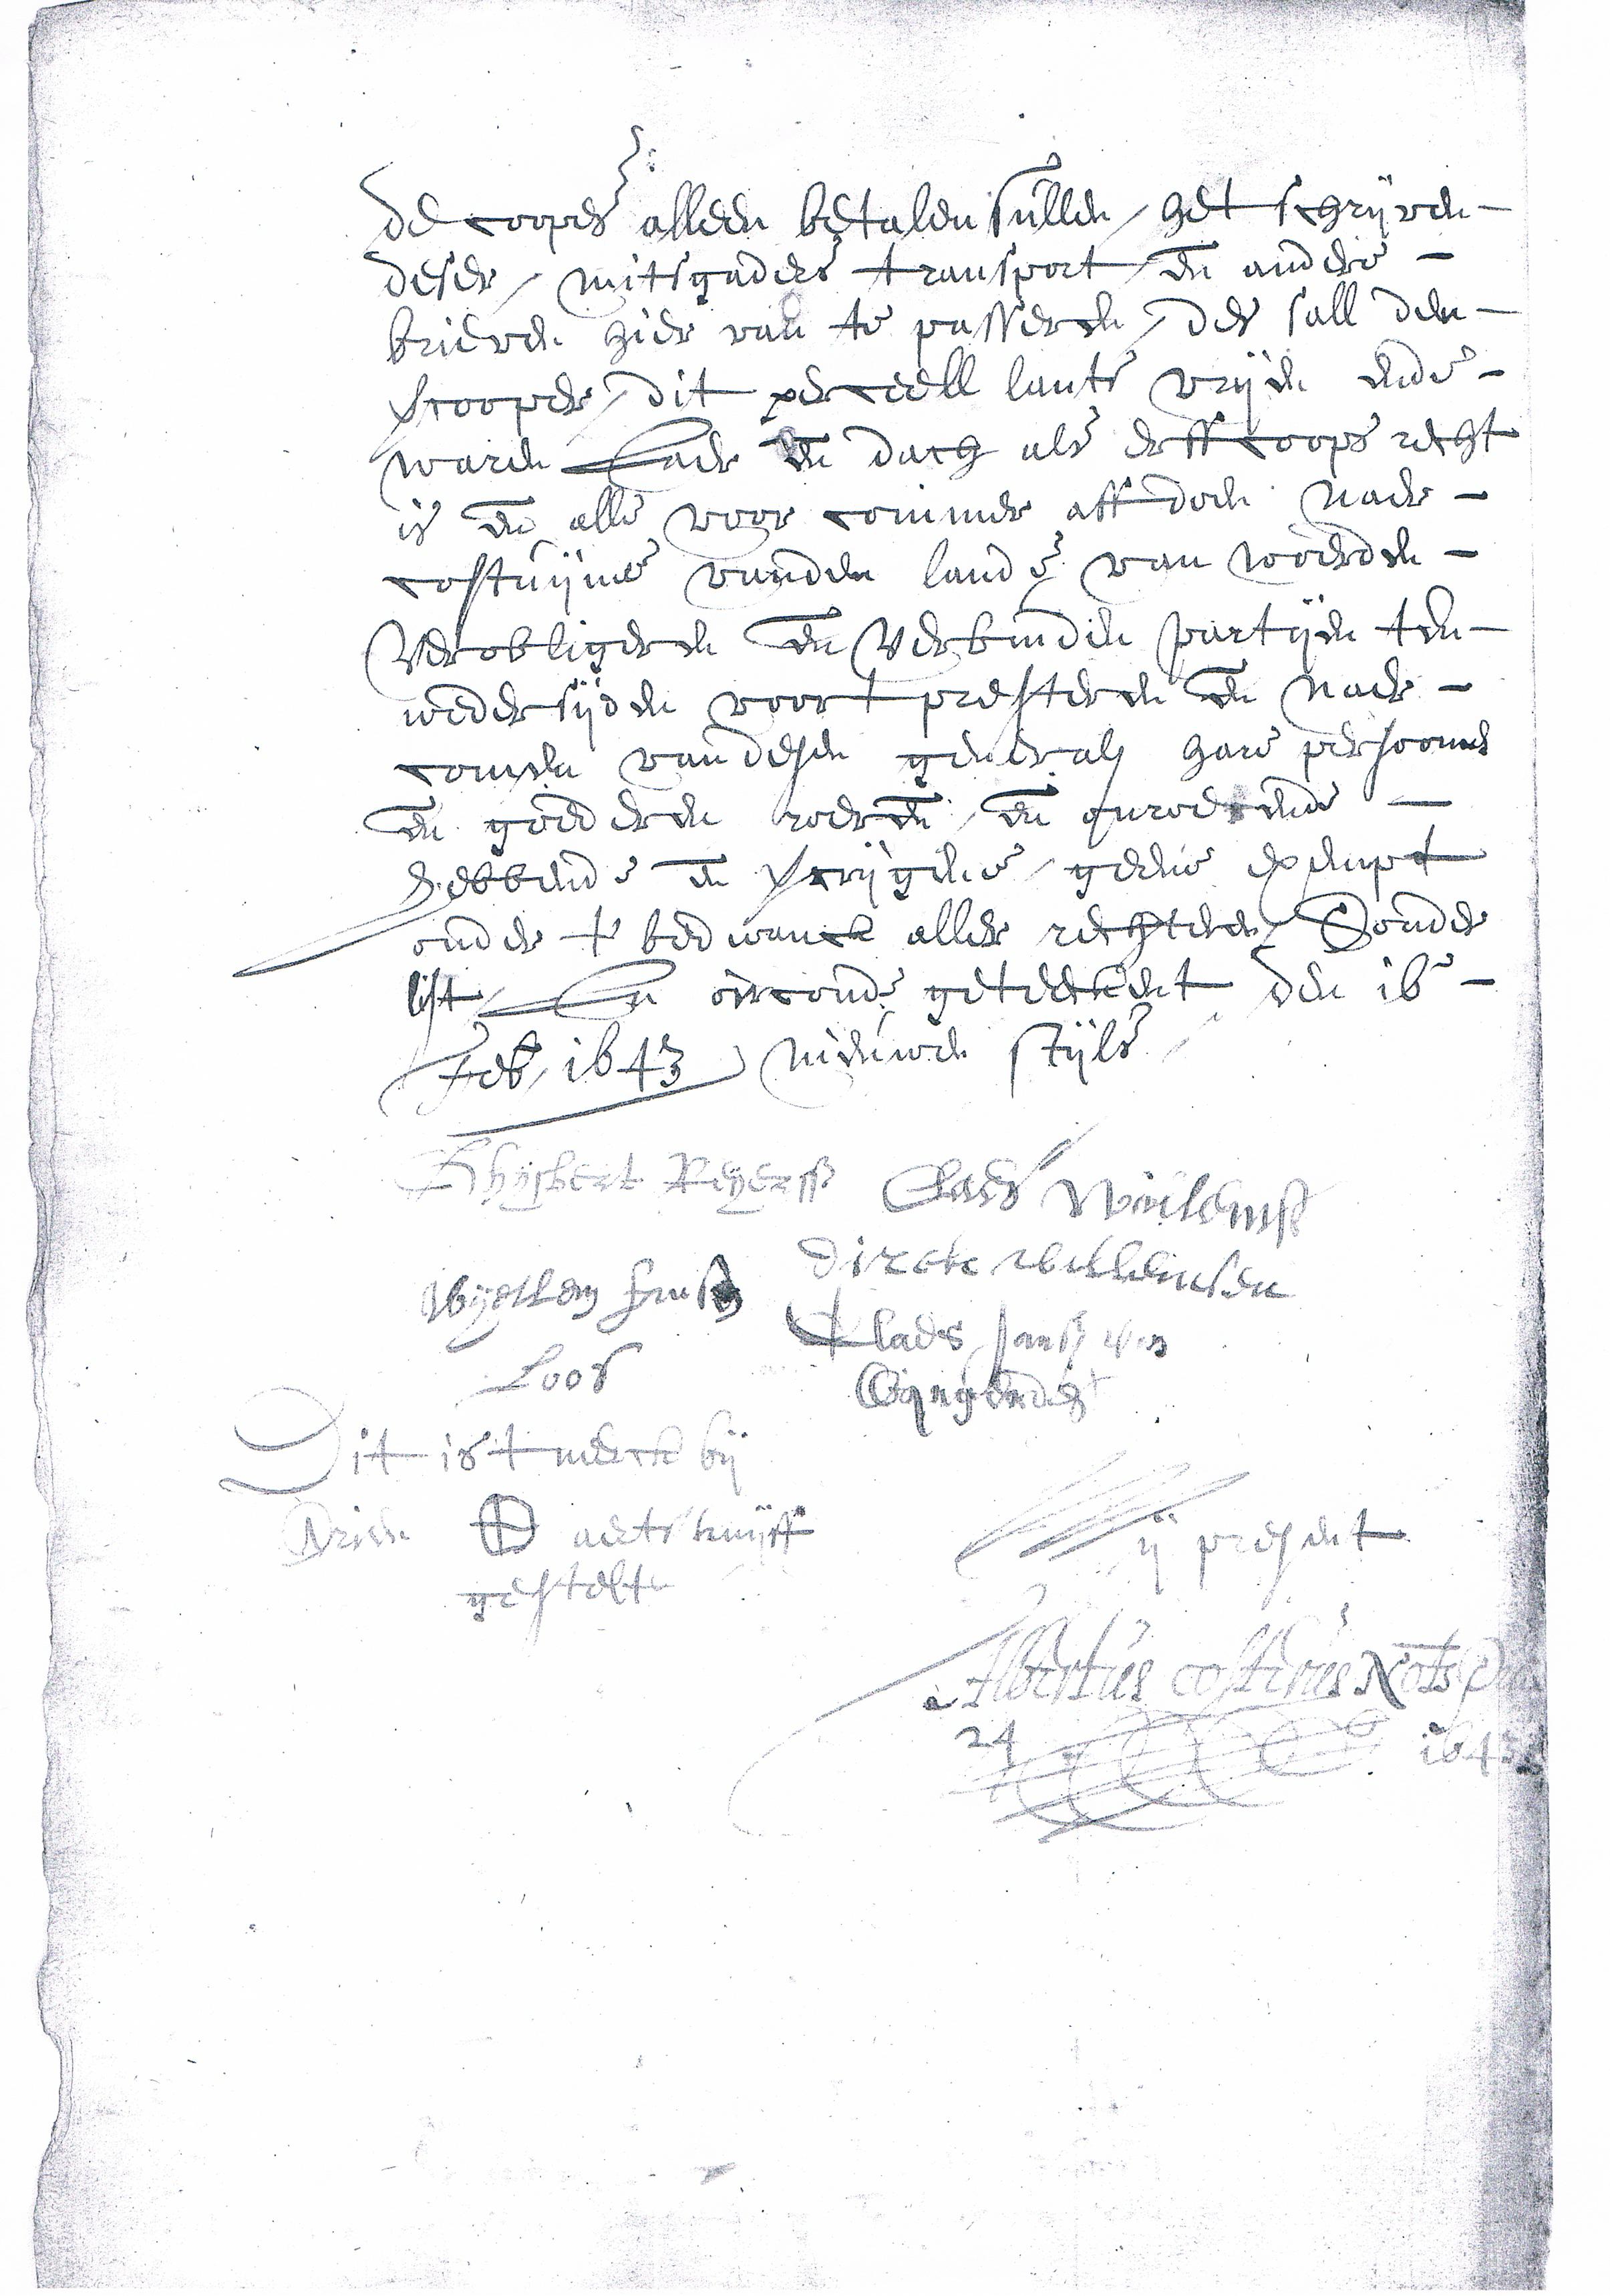 de coopers alleen betalen sullen / het schrijven -
deser / mitsgaders transport / en andere -
brieven hier van te passeren / des sall den -
vercooper / dit perceell lants vrijen ende -
waren Jaer en dach als erffcoops recht
is en alle voor commer aff doen naer -
costuijme vanden lande van woerden -
Verobligeren en Verbinden partijen ten -
wedersijden voort presteren en naer -
comen van desen generalij hare persoonen
en goederen roeren en onroerende -
hebbende en vercrijgene / geene exempt
onder t bedwanck aller rechteren / Sonder
list / In oirconde geteeckent den 16e -
Feb / 1643 nieuwen stijls
Ghijsbert Reijerss Claes Willemss
Dirck willemsen
Wyellem Jans
Claes Janss van
Loos
Dit is t merck bij
Arien aerts kuijff
gestelt
ij present
Albertus costerus Nots
24 1643